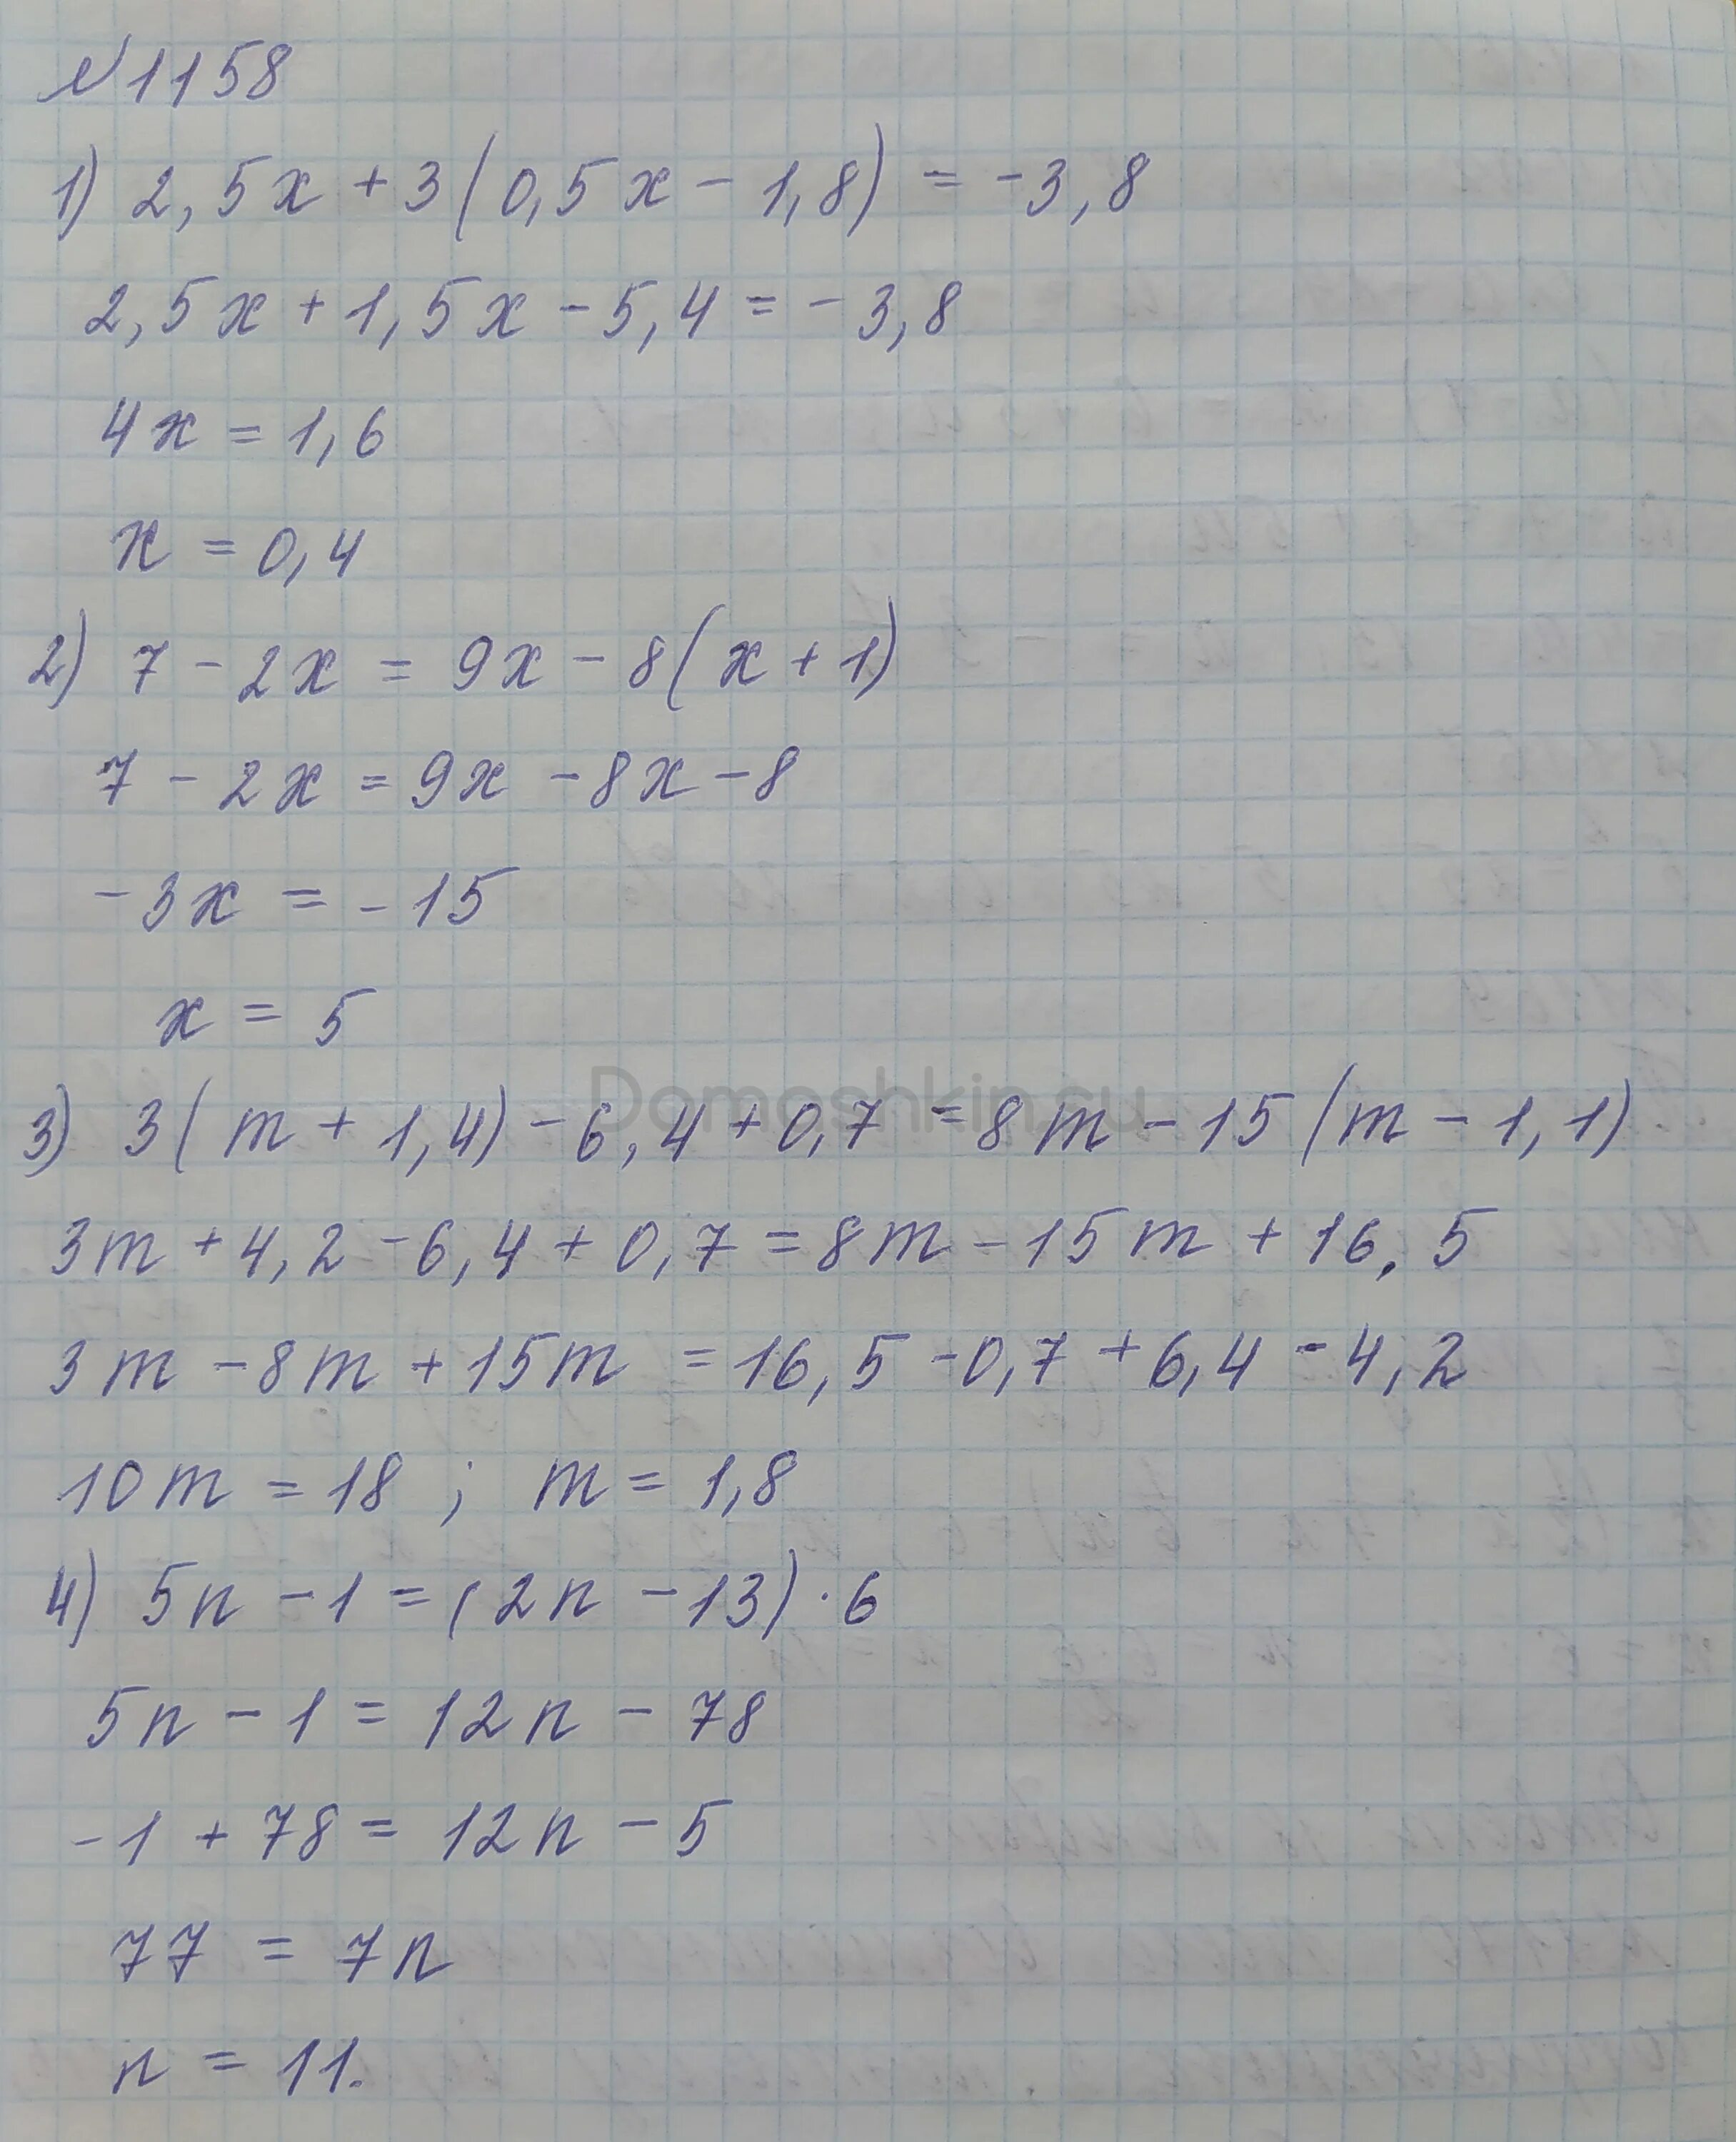 №1158
1) 2,5x + 3(0,5x - 1,8) = -3,8
2,5x + 1,5x - 5,4 = -3,8
4x = 1,6
x = 0,4
2) 7 - 2x = 9x - 8(x + 1)
7 - 2x = 9x - 8x - 8
-3x = -15
x = 5
Domoshkin.su
3) 3(m + 1,4) - 6,4 + 0,7 = 8m - 15(m - 1,1)
3m + 4,2 - 6,4 + 0,7 = 8m - 15m + 16,5
3m - 8m + 15m = 16,5 - 0,7 + 6,4 - 4,2
10m = 18 ; m = 1,8
4) 5n - 1 = (2n - 13) · 6
5n - 1 = 12n - 78
-1 + 78 = 12n - 5
77 = 7n
n = 11.